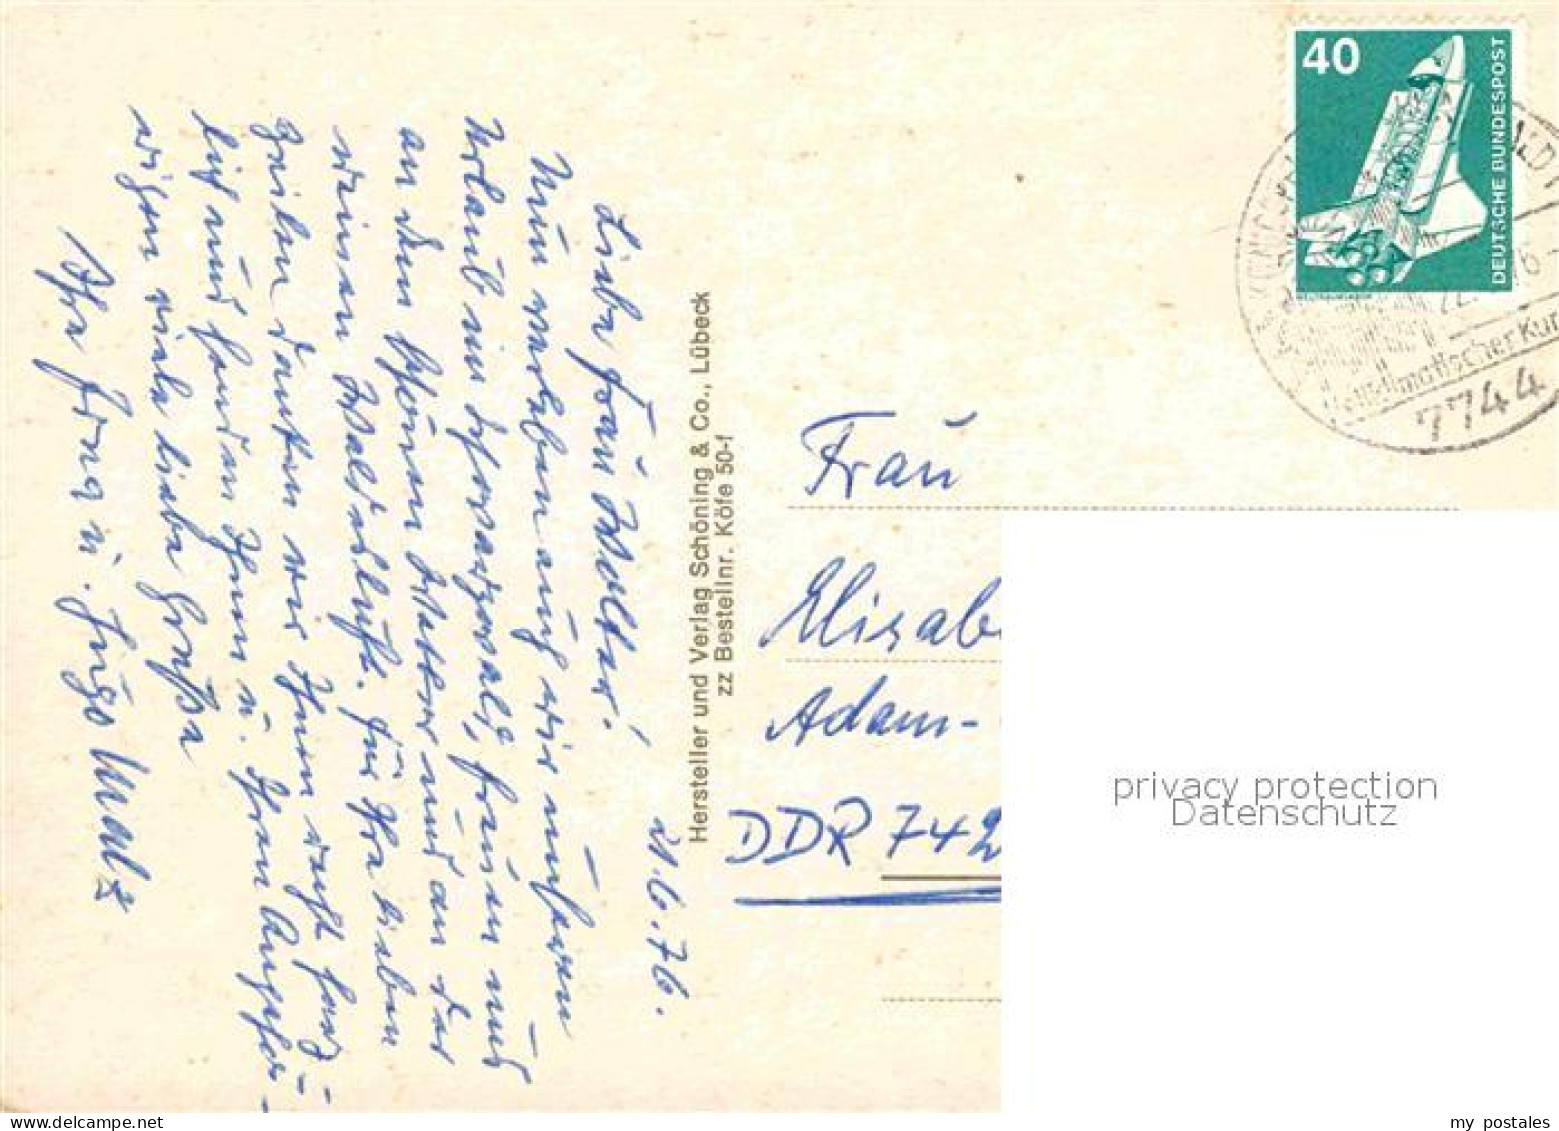 21.6.76.
Liebe Frau Walter!
Nun verleben auch wir unseren
Urlaub im Schwarzwald, freuen uns
an dem schönen Wetter und an der
reinen Waldesluft. Für Ihre lieben
Zeilen danken wir Ihnen recht herz-
lich und senden Ihnen u. Ihren Angehö-
rigen viele liebe Grüße
Ihre Irmg u. Hugo
Hersteller und Verlag Schöning & Co., Lübeck
zz Bestellnr. Köfe 50-f
40
DEUTSCHE BUNDESPOST
KÖNIGSF
WALD
22. 76-
heilklimatischer Kur
7744
Frau
Elisab
Adam-
DDR 742
privacy protection
Datenschutz
my postales